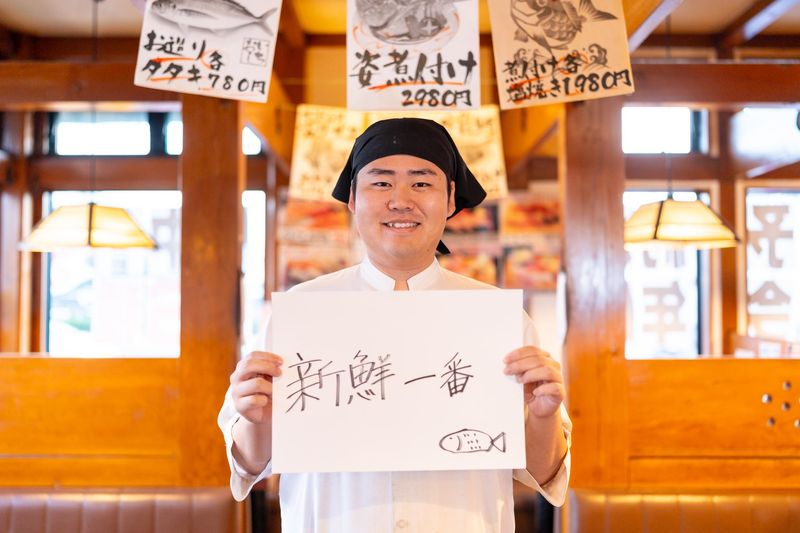 お造り各
タタキ780円
姿煮付け
2980円
煮付け各
塩焼き1,980円
新鮮一番